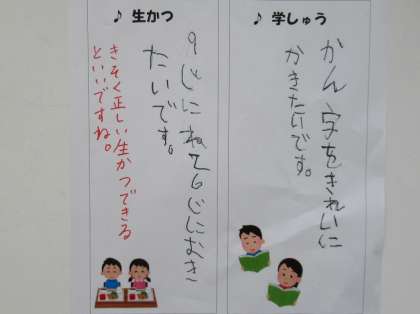 ♪ 学しゅう
かん字をきれいに
かきたいです。
♪ 生かつ
9じにねて6じにおき
たいです。
きそく正しい生かつできる
といいですね。